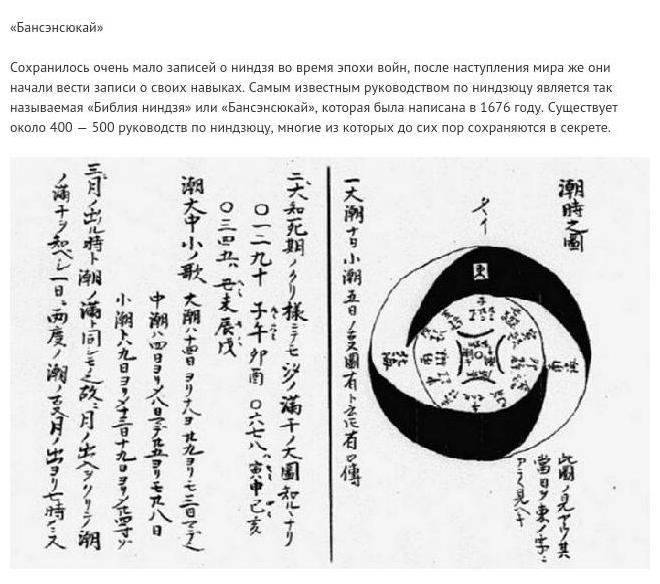 «Бансэнсюкай»
Сохранилось очень мало записей о ниндзя во время эпохи войн, после наступления мира же они
начали вести записи о своих навыках. Самым известным руководством по ниндзюцу является так
называемая «Библия ниндзя» или «Бансэнсюкай», которая была написана в 1676 году. Существует
около 400 — 500 руководств по ниндзюцу, многие из которых до сих пор сохраняются в секрете.
潮時之圖
東
此圖ノ見ヤウハ其
當日ヲ東ノ字ニ
アテヽ見ヘキ
一大潮十日小潮五日ノ 圖有ト 有口傳
二大和死期ノクリ様ニテモ汐ノ満干ノ大圖知ルヽナリ
〇一二九十 子午卯酉 〇六七八 寅申巳亥
〇三四五 丑未辰戌
潮大中小ノ歌 大潮ハ十四日ヨリ十八 廿九ヨリモ三日マデ
中潮ハ四日ヨリ八日マデ 廿五ヨリモ 八日
小潮ト八九日ヨリ 十三日十九日ヨリ 廿四
三月ノ出ル時ト潮ノ満ト同シモノ之故ニ月ノ出入ヲクリテ潮
ノ満干ヲ知ヘシ一日ニ両度ノ潮ノ 月ノ出ヨリ七時